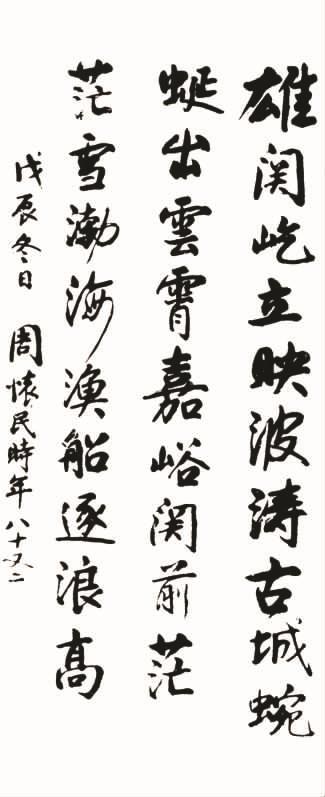 雄関屹立映波涛古城蜿
蜒出雲霄嘉峪関前茫
茫雪渤海漁船逐浪高
戊辰冬日 周懐民時年八十又二